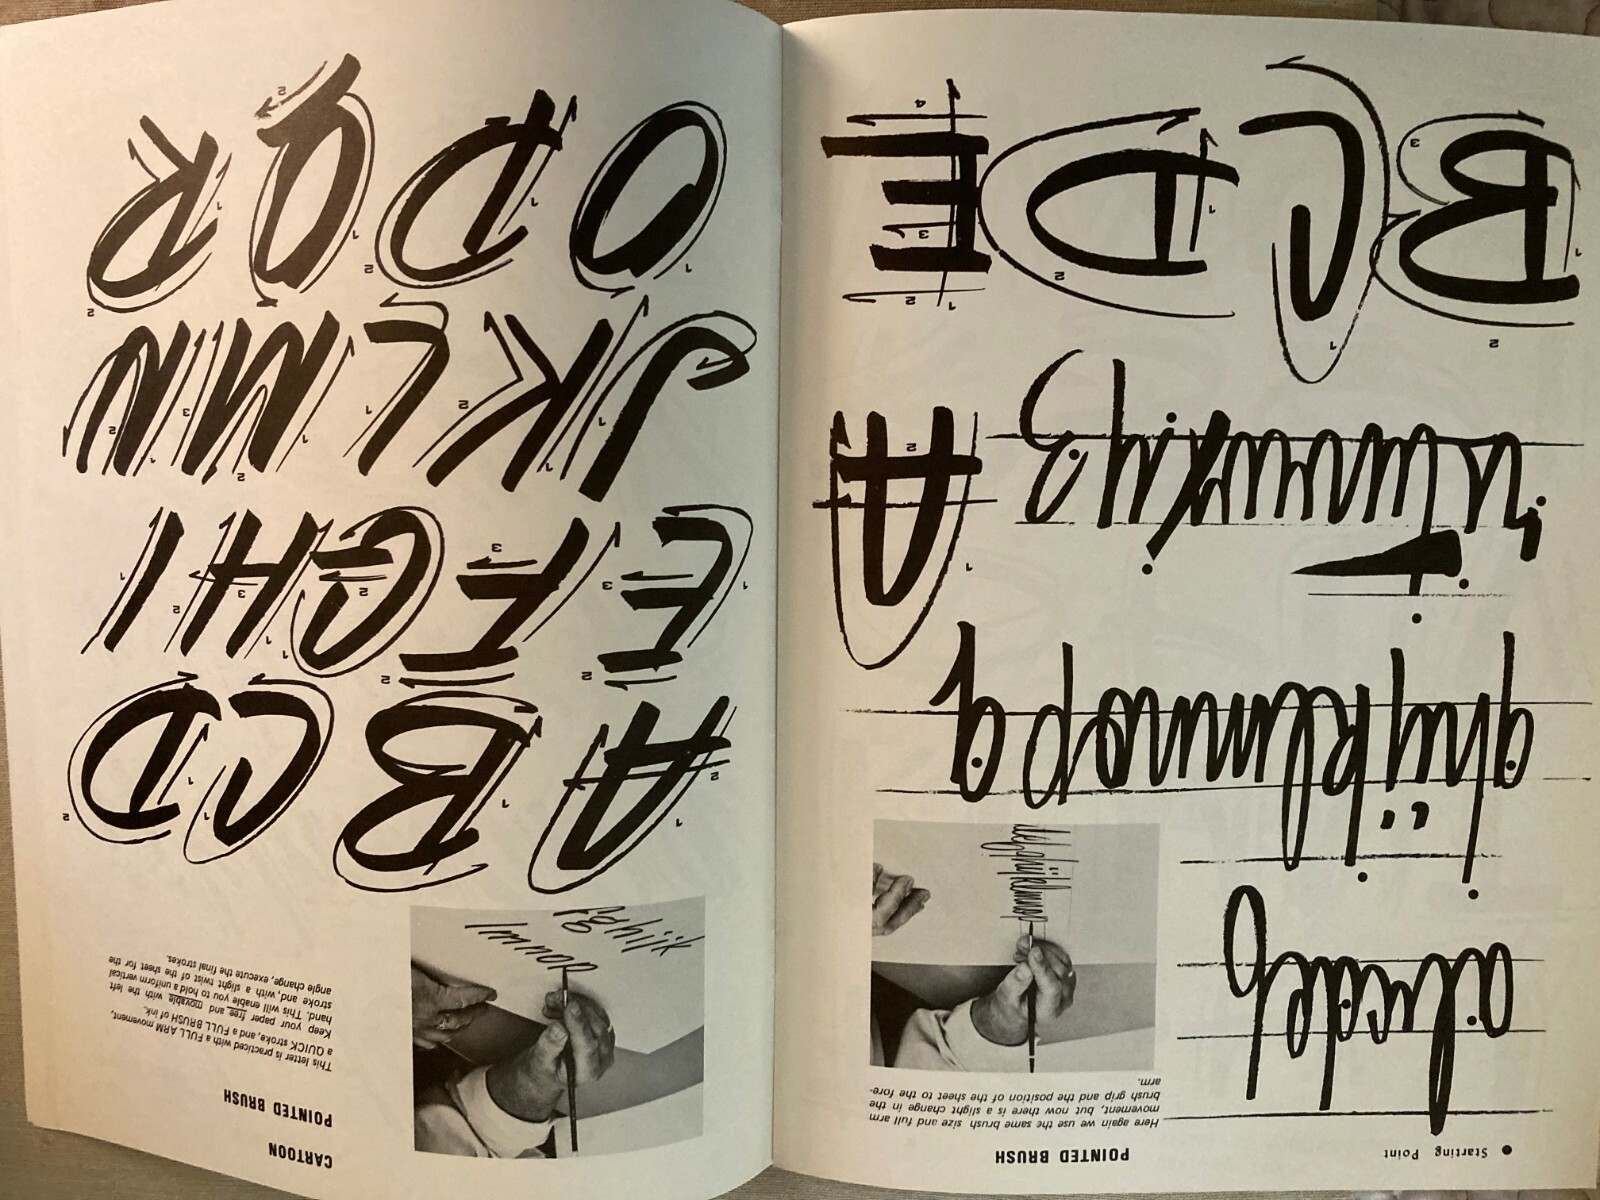 ● Starting Point
POINTED BRUSH
Here again we use the same brush size and full arm
movement, but now there is a slight change in the
brush grip and the position of the sheet to the fore-
arm.
abcdef
ghijklmnopq
rstuvwxyz
A
B C D E
CARTOON
POINTED BRUSH
This letter is practiced with a FULL ARM movement,
a QUICK stroke, and a FULL BRUSH of ink.
Keep your paper free and movable with the left
hand. This will enable you to hold a uniform vertical
stroke and, with a slight twist of the sheet for the
angle change, execute the final strokes.
A B C D
E F G H I
J K L M N
O P Q R